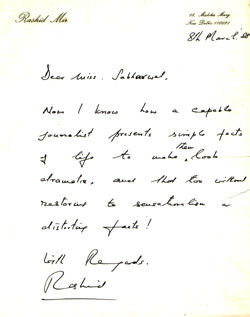 Rashid Mir
New Delhi 110021
8th March
Dear Miss. Sabharwal,
Now I know how a capable
journalist presents simple facts
of life to make them look
dramatic, and that too without
resorting to sensationalism or
distorting facts!
With Regards.
Rashid